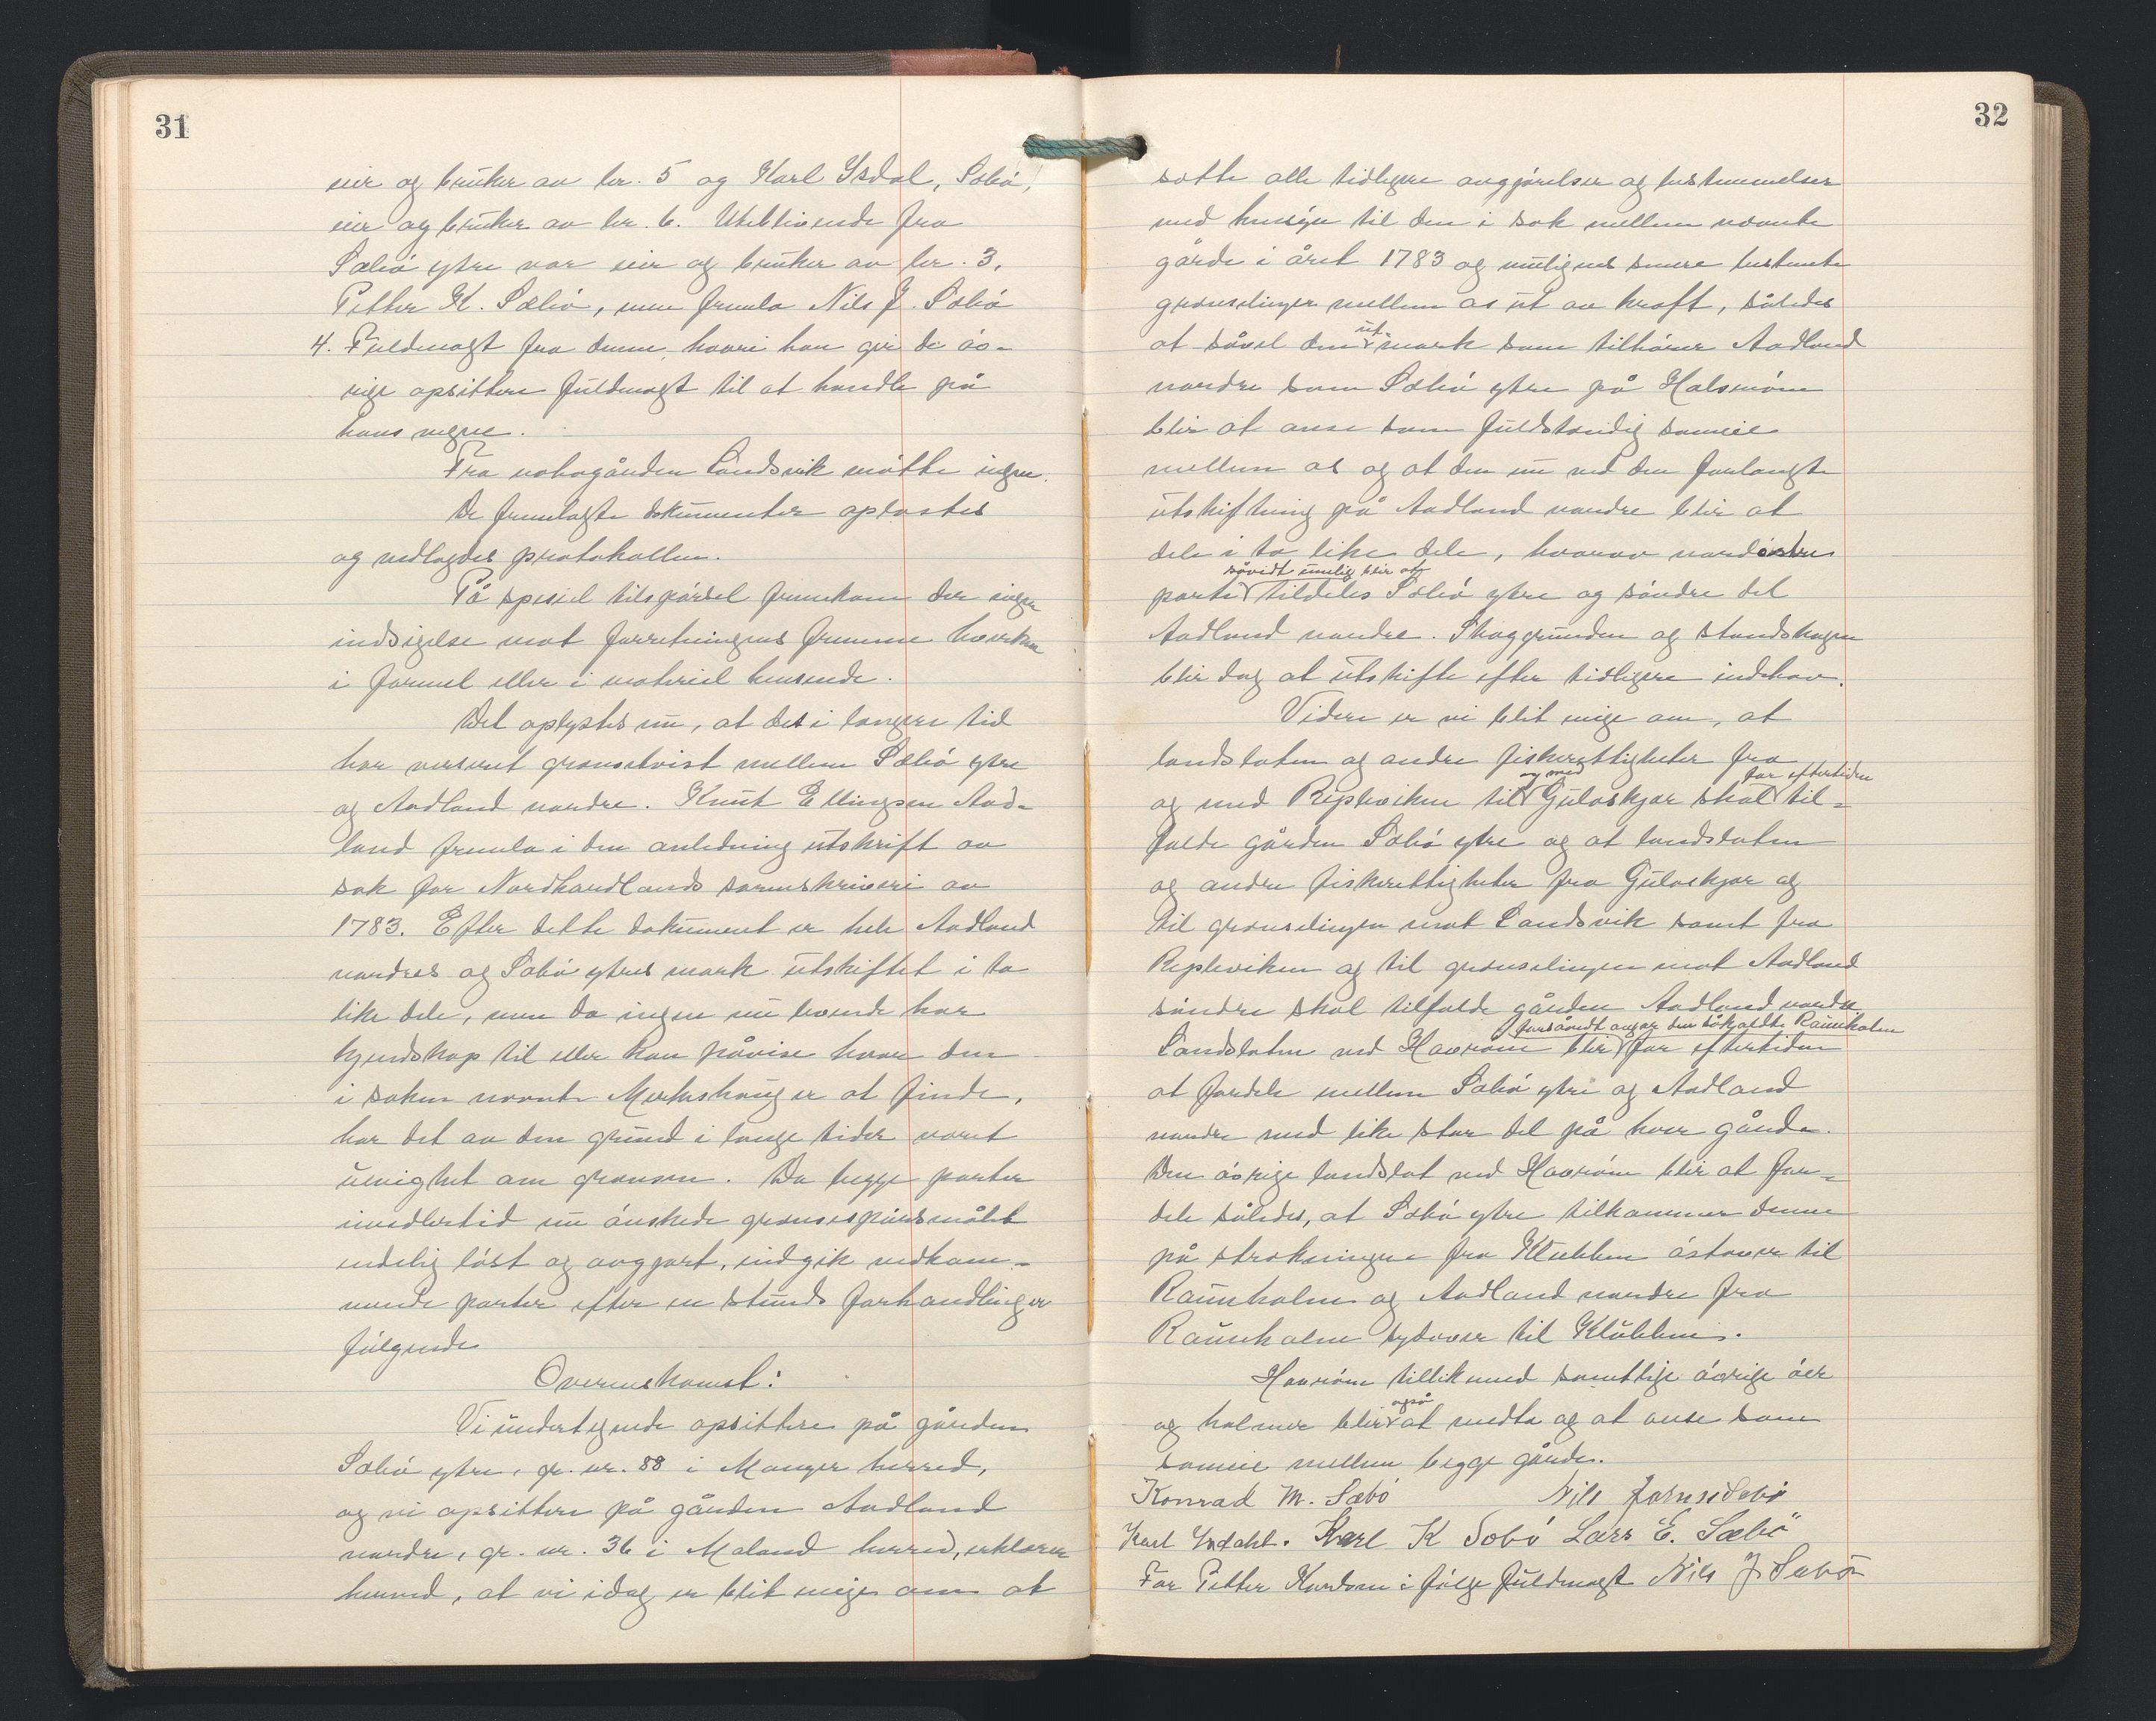 31
eier og bruker av br. 5 og Karl Ysdal, Sæbö,
eier og bruker av br. 6. Uteblivende fra
Sæbö ytre var eier og bruker av br. 3,
Petter K. Sæbö, men fremla Nils J. Sæbö
4. Fuldmagt fra denne, hvori han gir de öv-
rige opsittere fuldmagt til at handle på
hans vegne.
Fra nabogården Landsvik mötte ingen.
De fremlagte dokumenter oplæstes
og vedlagdes protokollen.
På spesiel tilspörsel fremkom der ingen
indsigelse mot forretningens fremme hverken
i formel eller i materiel henseende.
Det oplystes nu, at det i længere tid
har versert grænsetvist mellem Sæbö ytre
og Aadland nordre. Knut Ellingsen Aad-
land fremla i den anledning utskrift av
sak for Nordhordlands sorenskriveri av
1783. Efter dette dokument er hele Aadland
nordres og Sæbö ytres mark utskiftet i to
like dele, men da ingen nu levende har
kjendskap til eller kan påvise hvor den
i saken nævnte Merkeshaug er at finde,
har det av den grund i lange tider været
uenighet om grænsen. Da begge parter
imidlertid nu önskede grænsespörsmålet
endelig löst og avgjort, indgik vedkom-
mende parter efter en stunds forhandlinger
fölgende
Overenskomst:
Vi undertegnede opsittere på gården
Sæbö ytre, gr. nr. 88 i Manger herred,
og vi opsittere på gården Aadland
nordre, gr. nr. 36 i Mæland herred, erklærer
herved, at vi idag er blit enige om at
32
sætte alle tidligere avgjörelser og bestemmelser
med hensyn til den i sak mellem nævnte
gårde i året 1783 og muligens senere bestemte
grænselinjer mellem os ut av kraft, således
ut-
at såvel den mark som tilhörer Aadland
nordre som Sæbö ytre på Holsnöen
blir at anse som fuldstændig sameie
mellem os og at den nu ved den forlangte
utskiftning på Aadland nordre blir at
dele i to like dele, hvorav nordöstre
såvidt mulig blir at
parti tildeles Sæbö ytre og söndre del
Aadland nordre. Skoggrunden og standskogen
blir dog at utskifte efter tidligere indehav.
Videre er vi blit enige om, at
landslaten og andre fiskerettigheter fra
og med for eftertiden
og med Repleviken til Gulaskjær skal til-
falde gården Sæbö ytre og at landslaten
og andre fiskerettigheter fra Gulaskjær og
til grænselinjen mot Landsvik samt fra
Repleviken og til grænselinjen mot Aadland
söndre skal tilfalde gården Aadland nordre
forsåvidt angår den såkaldte Rauneholm
Landslaten ved Havröen blir for eftertiden
at fordele mellem Sæbö ytre og Aadland
nordre med like stor del på hver gård.
Den övrige landslat ved Havröen blir at for-
dele således, at Sæbö ytre tilkommer denne
på strækningen fra Klubben östover til
Rauneholm og Aadland nordre fra
Rauneholm sydover til Klubben.
Havröen tillikemed samtlige övrige öer
også
og holmer blir at medta og at anse som
sameie mellem begge gårde.
Konrad M. Sæbö Nils Johnsen Sebö
Karl Ysdahl. Karl K Sæbö Lars E. Sæbö
For Petter Karlsen i fölge fuldmagt Nils J Sæbö